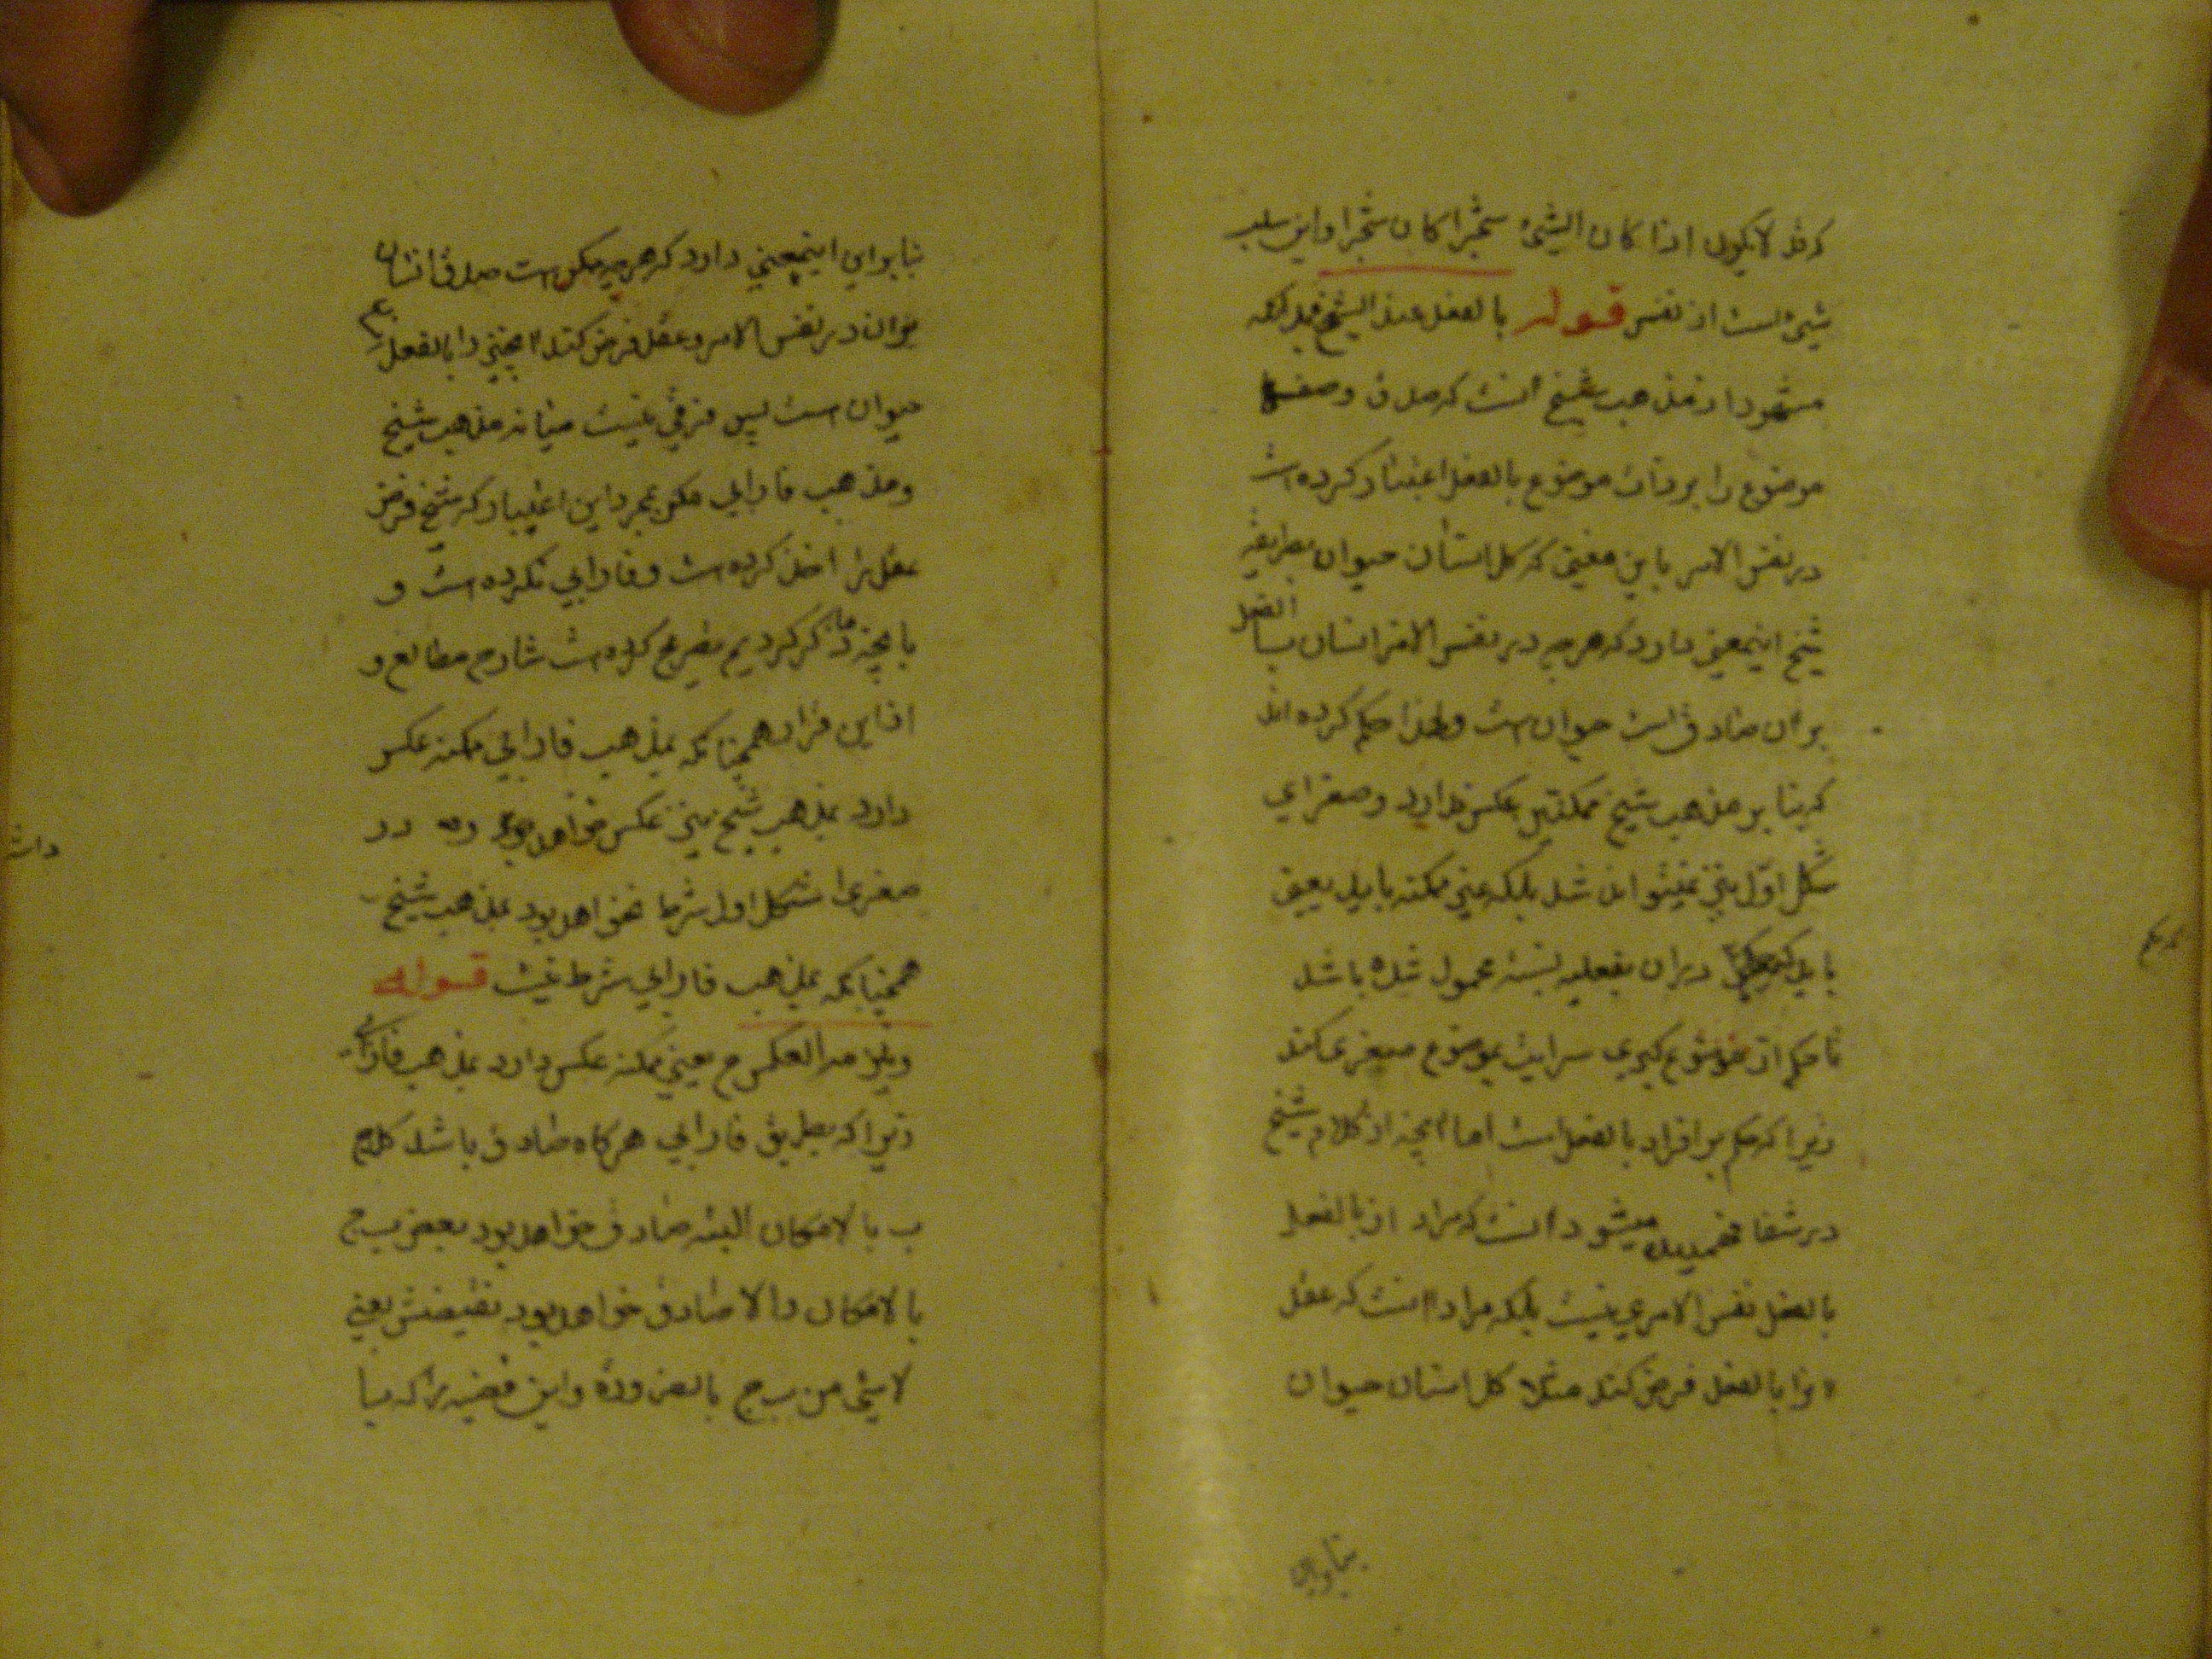 که قد لا یکون اذا کان الشیئ شجرا کان شجرا و این سلب
شیئ است از نفس قوله بالفعل عند الشیخ بدانکه
مشهور از مذهب شیخ آنست که صدق وصف
موضوع را بر ذات موضوع بالفعل اعتبار کرده است
در نفس الامر باین معنی که کل انسان حیوان بطریقه
شیخ اینمعنی دارد که هر چه در نفس الامر انسان بالفعل
بر ان صادق است حیوان است و لهذا حکم کرده اند
که بنا بر مذهب شیخ ممکنتین عکس ندارد و صغرای
شکل اوّل نیز نمیتواند شد بلکه غیر ممکنه باید یعنی
باید که در ان بفعلیه نسبة محمول شده باشد
تا حکم از موضوع کبری سرایت بموضوع صغری کند
زیرا که حکم بر افراد بالفعل است اما آنچه از کلام شیخ
در شفا فهمیده میشود آنست که مراد از بالفعل
بالفعل نفس الامری نیست بلکه مراد آنست که عقل
انرا بالفعل فرض کند مثلا کل انسان حیوان
بنابرای
بنابرای اینمعنی دارد که هر چه ممکن است صدق انسان
بران در نفس الامر و عقل فرض کند انجنین را بالفعل
حیوان است پس فرقی نیست میانه مذهب شیخ
و مذهب فارابی مکر بمجرد این اعتبار که شیخ فرض
عقل را اخذ کرده است و فارابی نکرده است و
بانچه ما ذکر کردیم تصریح کرده است شارح مطالع و
از این قرار همچنانکه بمذهب فارابی ممکنه عکس
دارد بمذهب شیخ نیز عکس خواهد بود و در
صغری شکل اول شرط نخواهد بود بمذهب شیخ
همچنانکه بمذهب فارابی شرط نیست قوله
ویلزمه العکس ح یعنی ممکنه عکس دارد بمذهب فارابی
زیرا که بطریق فارابی هرکاه صادق باشد کل ج
ب بالامکان البته صادق خواهد بود بعض ب ج
بالامکان والا صادق خواهد بود نقیضش یعنی
لا شیئ من ب ج بالضرورة و این قضیه را که بیا